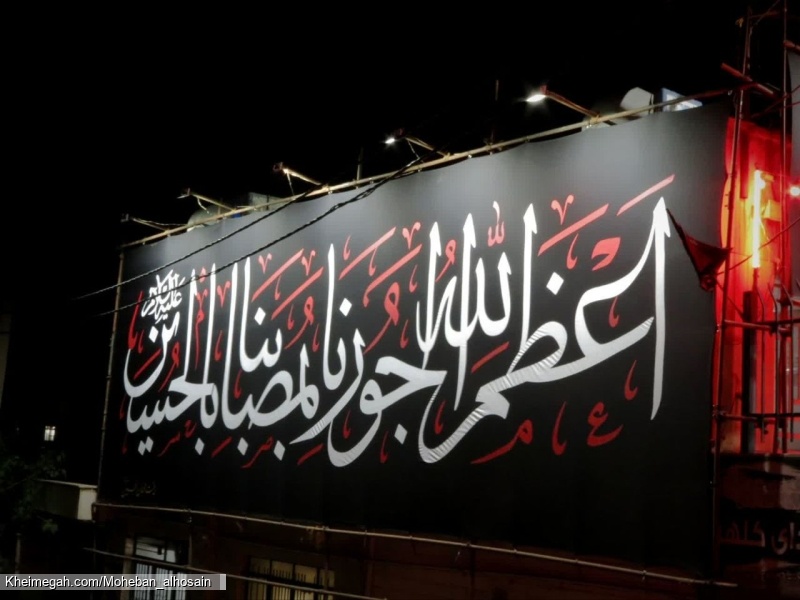 أَعْظَمَ اللّٰهُ أُجُورَنَا بِمُصَابِنَا بِالْحُسَيْنِ عليه السلام
Kheimegah.com/Moheban_alhosain